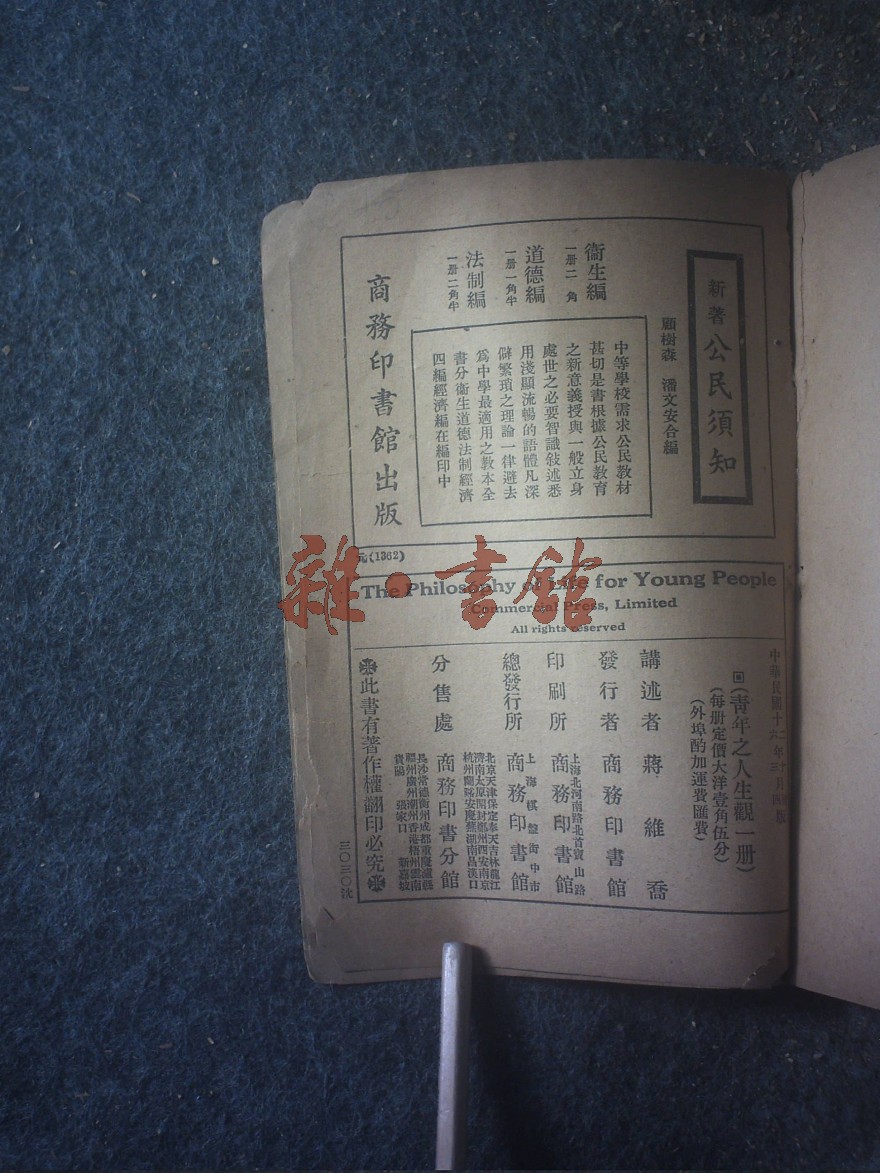 新著公民須知
顧樹森 潘文安合編
衞生編
一册二角
道德編
一册一角半
法制編
一册二角半
中等學校需求公民教材
甚切是書根據公民教育
之新意義授與一般立身
處世之必要智識敍述悉
用淺顯流暢的語體凡深
僻繁瑣之理論一律避去
爲中學最適用之教本全
書分衞生道德法制經濟
四編經濟編在編印中
商務印書館出版
元(1362)
The Philosophy of Life for Young People
Commercial Press, Limited
All rights reserved
中華民國十二年十
(青年之人生觀一册)
(每册定價大洋壹角伍分)
(外埠酌加運費匯費)
講述者 蔣維喬
發行者 商務印書館
印刷所 上海北河南路北首寶山路
商務印書館
總發行所 上海棋盤街中市
商務印書館
分售處 商務印書分館
北京天津保定奉天吉林龍江
濟南太原開封鄭州西安南京
杭州蘭谿安慶蕪湖南昌漢口
長沙常德衡州成都重慶瀘縣
福州廣州潮州香港梧州雲南
貴陽 張家口 新嘉坡
此書有著作權翻印必究
三〇三〇號
雜·書館